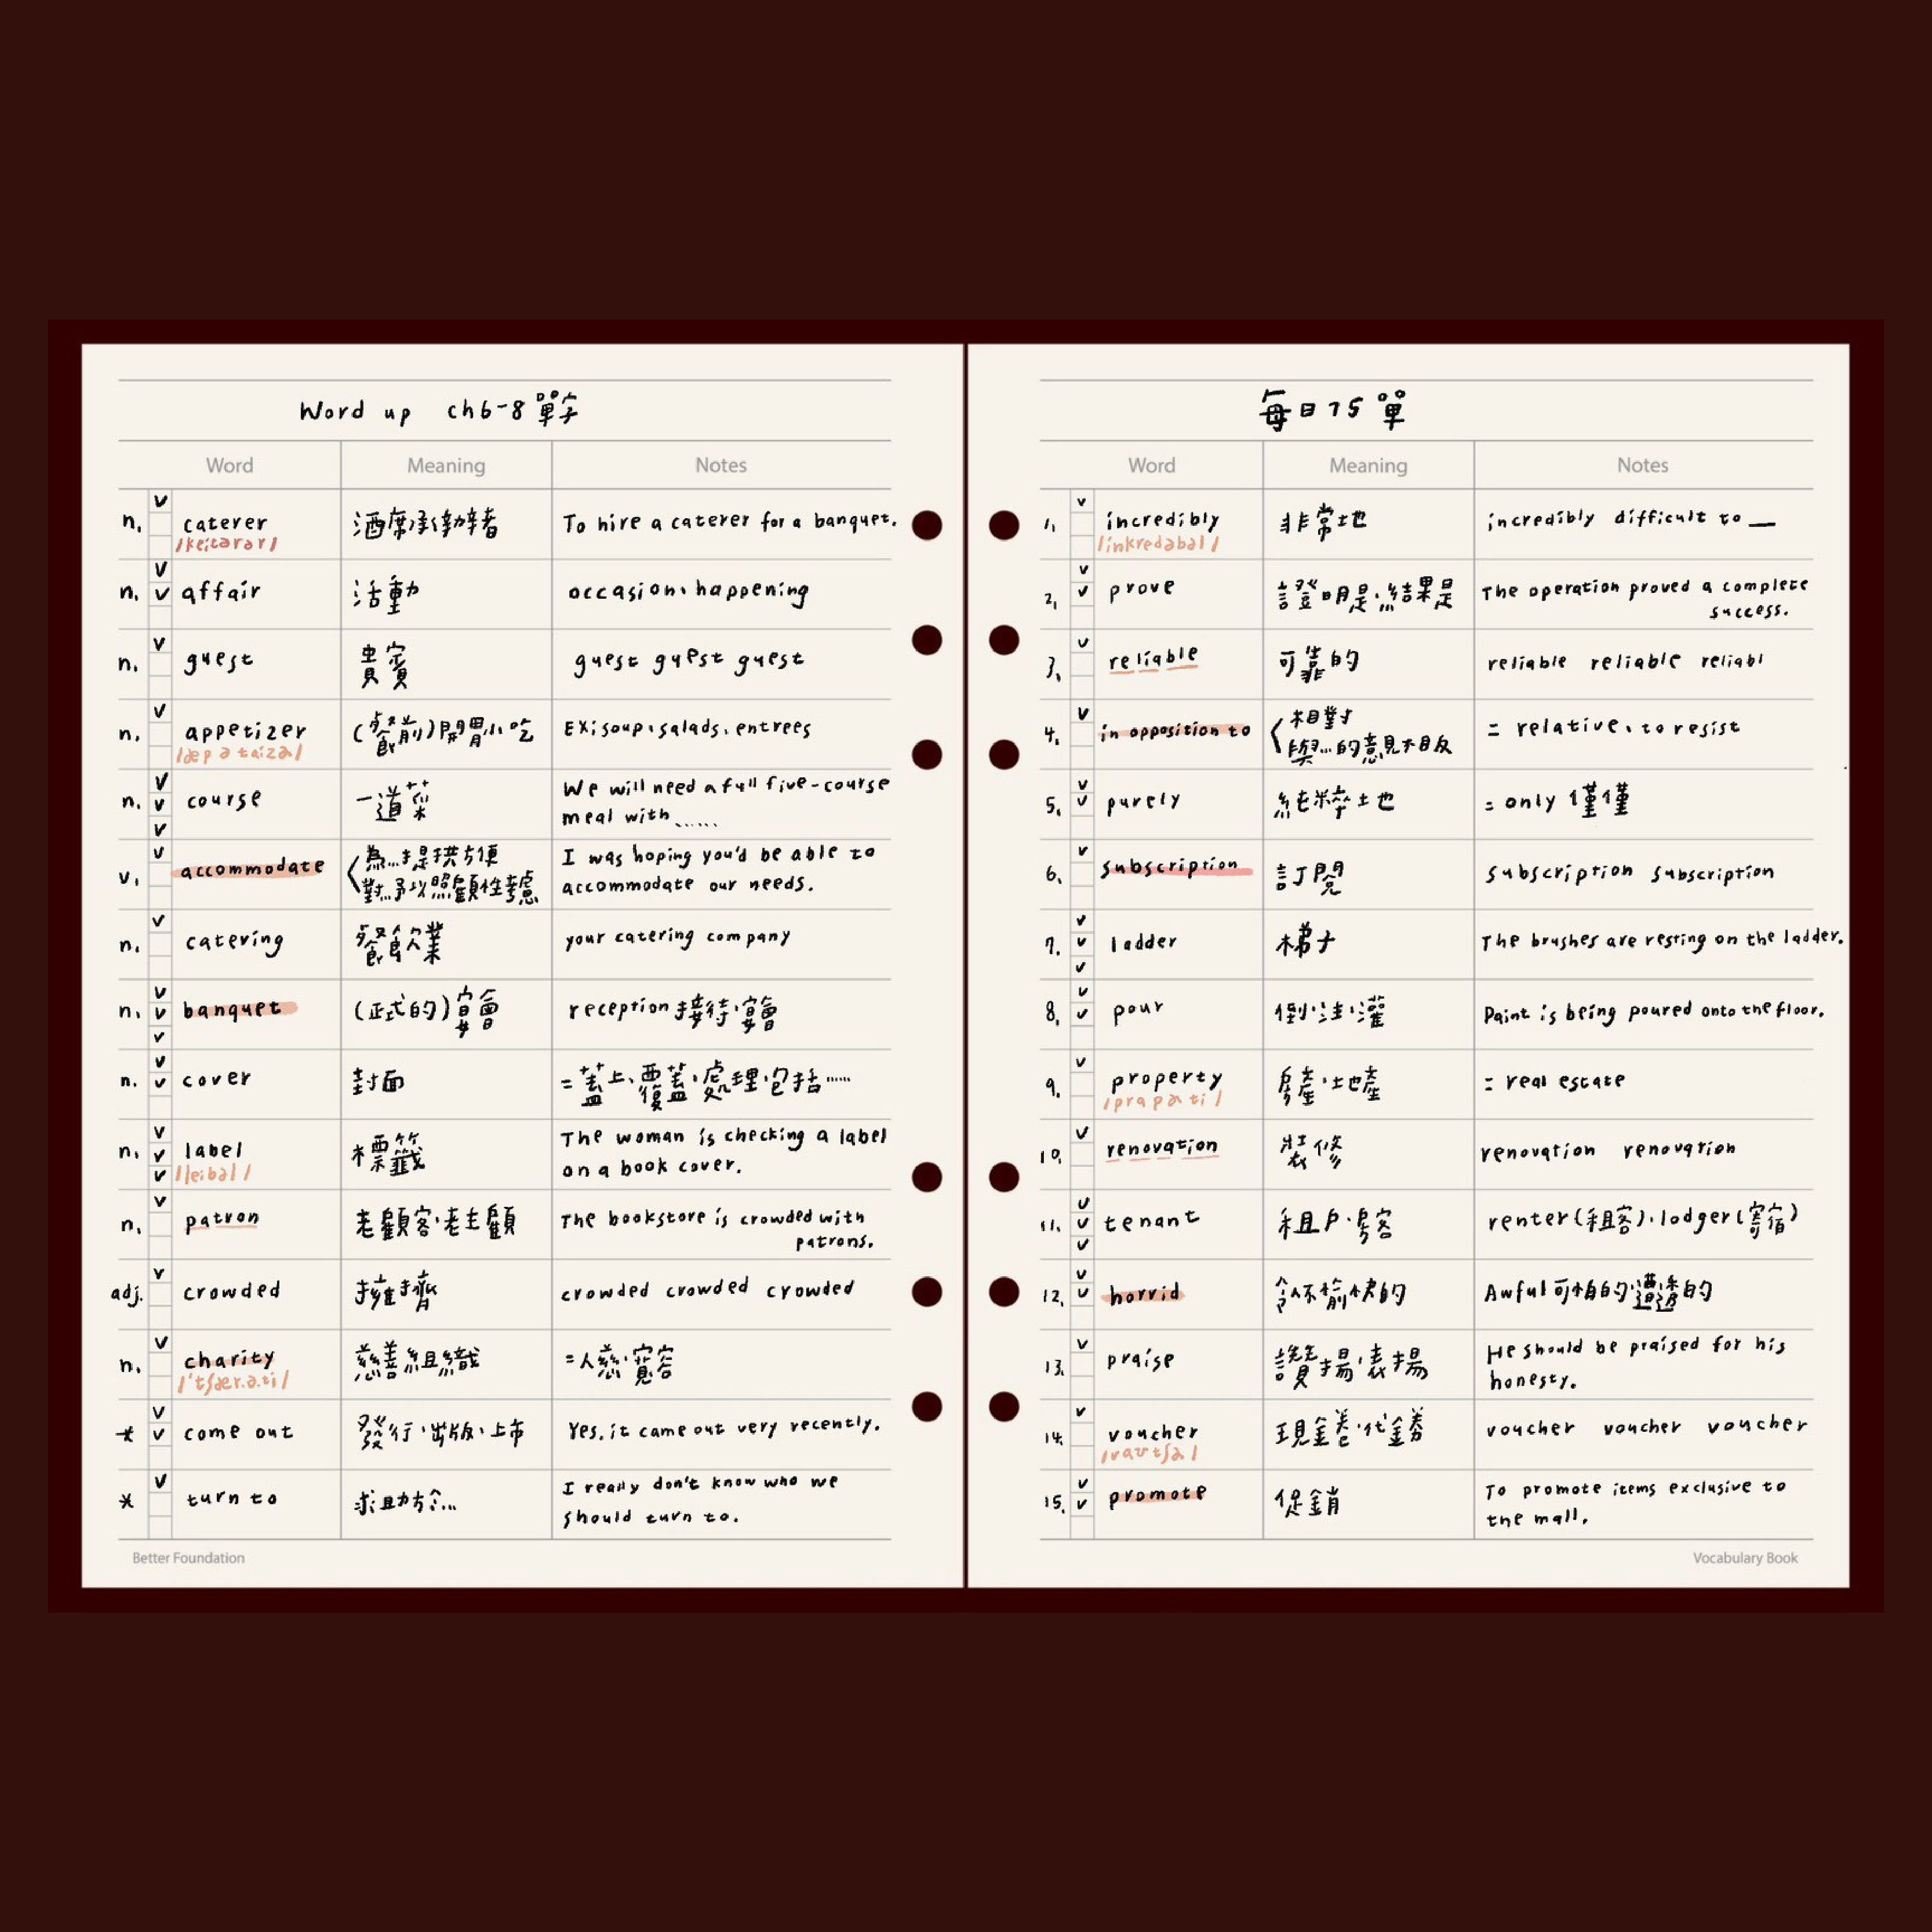 Word up ch6-8 單字
Word Meaning Notes
n. v caterer 酒席承辦者 To hire a caterer for a banquet.
/keitərər/
n. v v affair 活動 occasion、happening
n. v guest 貴賓 guest guest guest
n. v appetizer (餐前)開胃小吃 Ex:soup、salads、entrees
/æpətaizə/
n. v v v course 一道菜 We will need a full five-course
meal with......
v. v accommodate 〈為...提供方便 I was hoping you'd be able to
對...予以照顧性考慮 accommodate our needs.
n. v catering 餐飲業 your catering company
n. v v v banquet (正式的)宴會 reception接待、宴會
n. v v cover 封面 =蓋上、覆蓋、處理、包括......
n. v v v label 標籤 The woman is checking a label
/leibəl/ on a book cover.
n. v patron 老顧客、老主顧 The bookstore is crowded with
patrons.
adj. v crowded 擁擠 crowded crowded crowded
n. v charity 慈善組織 =仁慈、寬容
/ˈtʃær.ə.ti/
* v v come out 發行、出版、上市 Yes, it came out very recently.
* v turn to 求助於... I really don't know who we
should turn to.
Better Foundation
每日15單
Word Meaning Notes
1. v incredibly 非常地 incredibly difficult to __
/inkredəbəl/
2. v v prove 證明是、結果是 The operation proved a complete
success.
3. v reliable 可靠的 reliable reliable reliabl
4. v in opposition to 〈相對
與...的意見相反 = relative、to resist
5. v v purely 純粹地 = only 僅僅
6. v subscription 訂閱 subscription subscription
7. v v v ladder 梯子 The brushes are resting on the ladder.
8. v v pour 倒、注、灌 Paint is being poured onto the floor.
9. v property 房產、地產 = real estate
/prapəti/
10. v renovation 裝修 renovation renovation
11. v v v tenant 租戶、房客 renter(租客)、lodger(寄宿)
12. v v horrid 令人不愉快的 Awful可怕的、遭透的
13. v praise 讚揚、表揚 He should be praised for his
honesty.
14. v voucher 現金卷、代金券 voucher voucher voucher
/vaʊtʃə/
15. v v promote 促銷 To promote items exclusive to
the mall.
Vocabulary Book